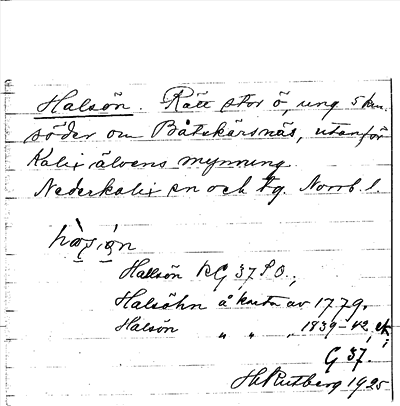 Halsön. Rätt stor ö, ung 5 km.
söder om Båtskärsnäs, utanför
Kalix älvens mynning.
Nederkalix sn och tg. Norrb. l.
Halsön RG 37 S.O.,
Halsöhn å karta av 1779.
Halsön „ „ „ 1839-42,
G 37.
H. Rutberg 1925